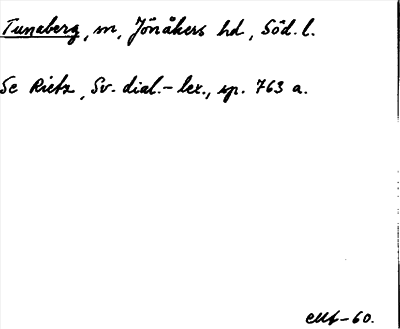 Tunaberg, m, Jönåkers hd, Söd. l.
Se Rietz, Sv. dial.-lex., sp. 763 a.
-60.